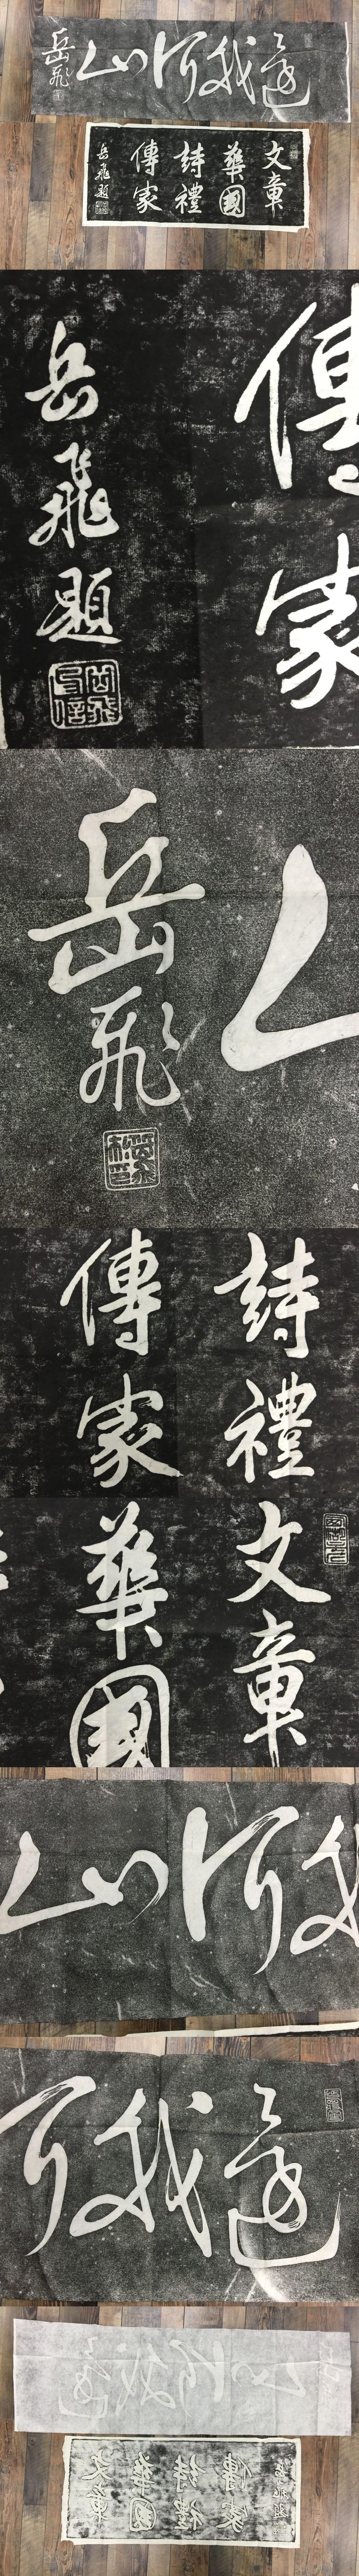 還我河山
岳飛
文章
華國
詩禮
傳家
岳飛題
傳家
岳飛題
岳飛
詩禮
傳家
文章
華國
我河山
還我河
還我河山
文章
華國
詩禮
傳家